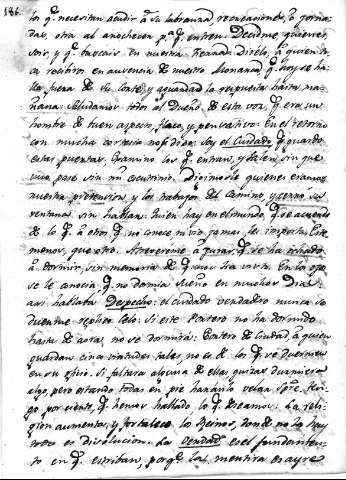 186.
los q. necesitan acudir a su labranza, recreaciones, o jornadas,
otra al anochecer p.a q. entren. Decidme, quienes
sois, y q. buscais en nuestra tierra? Direlo, a quien
recibiros en ausencia de nuestro Monarca, q. hoy se halla
fuera de su Corte, y aguardad la respuesta hasta mañana.
Saludamos todos al Dueño de esta voz, q. era un
hombre de buen aspecto, flaco, y pensativo. En el retorno
con mucha cortesia nos dijo: Soy el Cuidado, q. guardo
estas puertas. Examino los q. entran, y salen, sin que
uno pase sin mi escrutinio. Dijimosle quienes eramos,
nuestra pretension, y los trabajos del camino, y cerro su
ventana sin hablar. Quien hay en el mundo, q. se acuerde
de lo q. a otro, q. no conoce ni vio jamas, le importa
menor, que otro. Atrevereme a jurar, q. se ha echado
a dormir, sin memoria de q. nos ha visto. En los ojos
se le conocia, q. no dormia sueño en muchos Dias
asi hablaba Despecho: el cuidado verdadero nunca se
duerme replico Celo: Si este Portero no ha dormido
hasta de aora, no se dormira. Portero de Ciudad, a quien
guardan cinco virtudes tales, no es de los q. se duermen
en su oficio. Si faltara alguna de ellas quizas durmiera
algo, pero estando todas en pie haranno velar Spre.
por cierto, q. hemos hallado, lo q. deseamos. La religion
aumenta, y fortalece los Reinos, donde no la hay
todo es disolucion. La verdad es el fundamento
en q. estriban, porq. la mentira es ayre